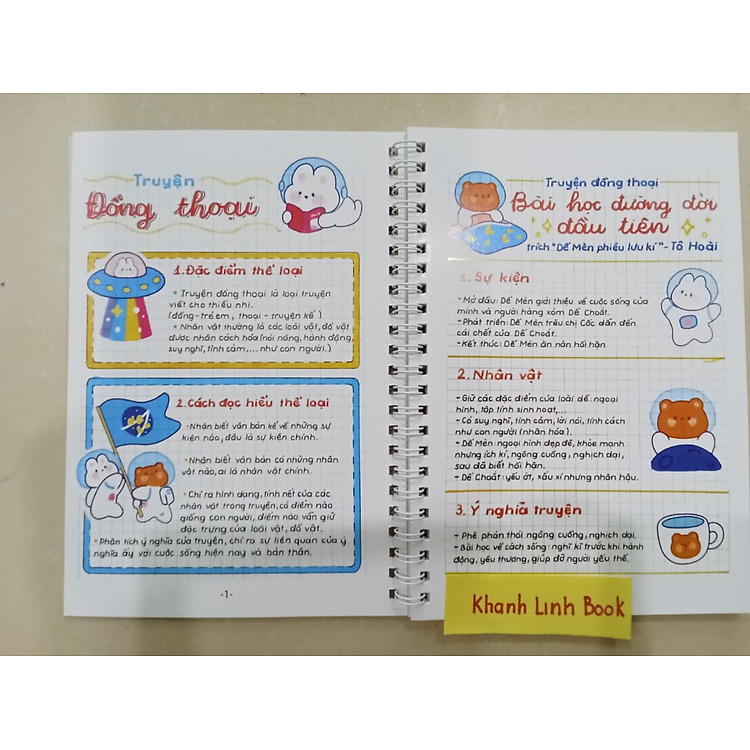 Truyện
Đồng thoại
1. Đặc điểm thể loại
* Truyện đồng thoại là loại truyện
viết cho thiếu nhi.
(đồng-trẻ em, thoại - truyện kể)
* Nhân vật thường là các loài vật, đồ vật
được nhân cách hóa (nói năng, hành động,
suy nghĩ, tình cảm,... như con người.)
2. Cách đọc hiểu thể loại
*Nhận biết văn bản kể về những sự
kiện nào, đâu là sự kiện chính.
*Nhận biết văn bản có những nhân
vật nào, ai là nhân vật chính.
*Chỉ ra hình dạng, tính nết của các
nhân vật trong truyện, có điểm nào
giống con người, điểm nào vẫn giữ
đặc trưng của loài vật, đồ vật.
* Phân tích ý nghĩa của truyện, chỉ ra sự liên quan của ý
nghĩa ấy với cuộc sống hiện nay và bản thân.
-1-
Truyện đồng thoại
Bài học đường đời
đầu tiên
trích "Dế Mèn phiêu lưu kí" - Tô Hoài
1. Sự kiện
- Mở đầu: Dế Mèn giới thiệu về cuộc sống của
mình và người hàng xóm Dế Choắt.
- Phát triển: Dế Mèn trêu chị Cốc dẫn đến
cái chết của Dế Choắt.
- Kết thúc: Dế Mèn ăn năn hối hận
2. Nhân vật
- Giữ các đặc điểm của loài dế: ngoại
hình, tập tính sinh hoạt,...
- Có suy nghĩ, tình cảm, lời nói, tính cách
như con người (nhân hóa).
- Dế Mèn: ngoại hình đẹp đẽ, khỏe mạnh
nhưng ích kỉ, ngông cuồng, nghịch dại,
sau đã biết hối hận.
- Dế Choắt: yếu ớt, xấu xí nhưng nhân hậu.
3. Ý nghĩa truyện
- Phê phán thói ngông cuồng, nghịch dại.
- Bài học về cách sống: nghĩ kĩ trước khi hành
động, yêu thương, giúp đỡ người yếu thế.
Khanh Linh Book